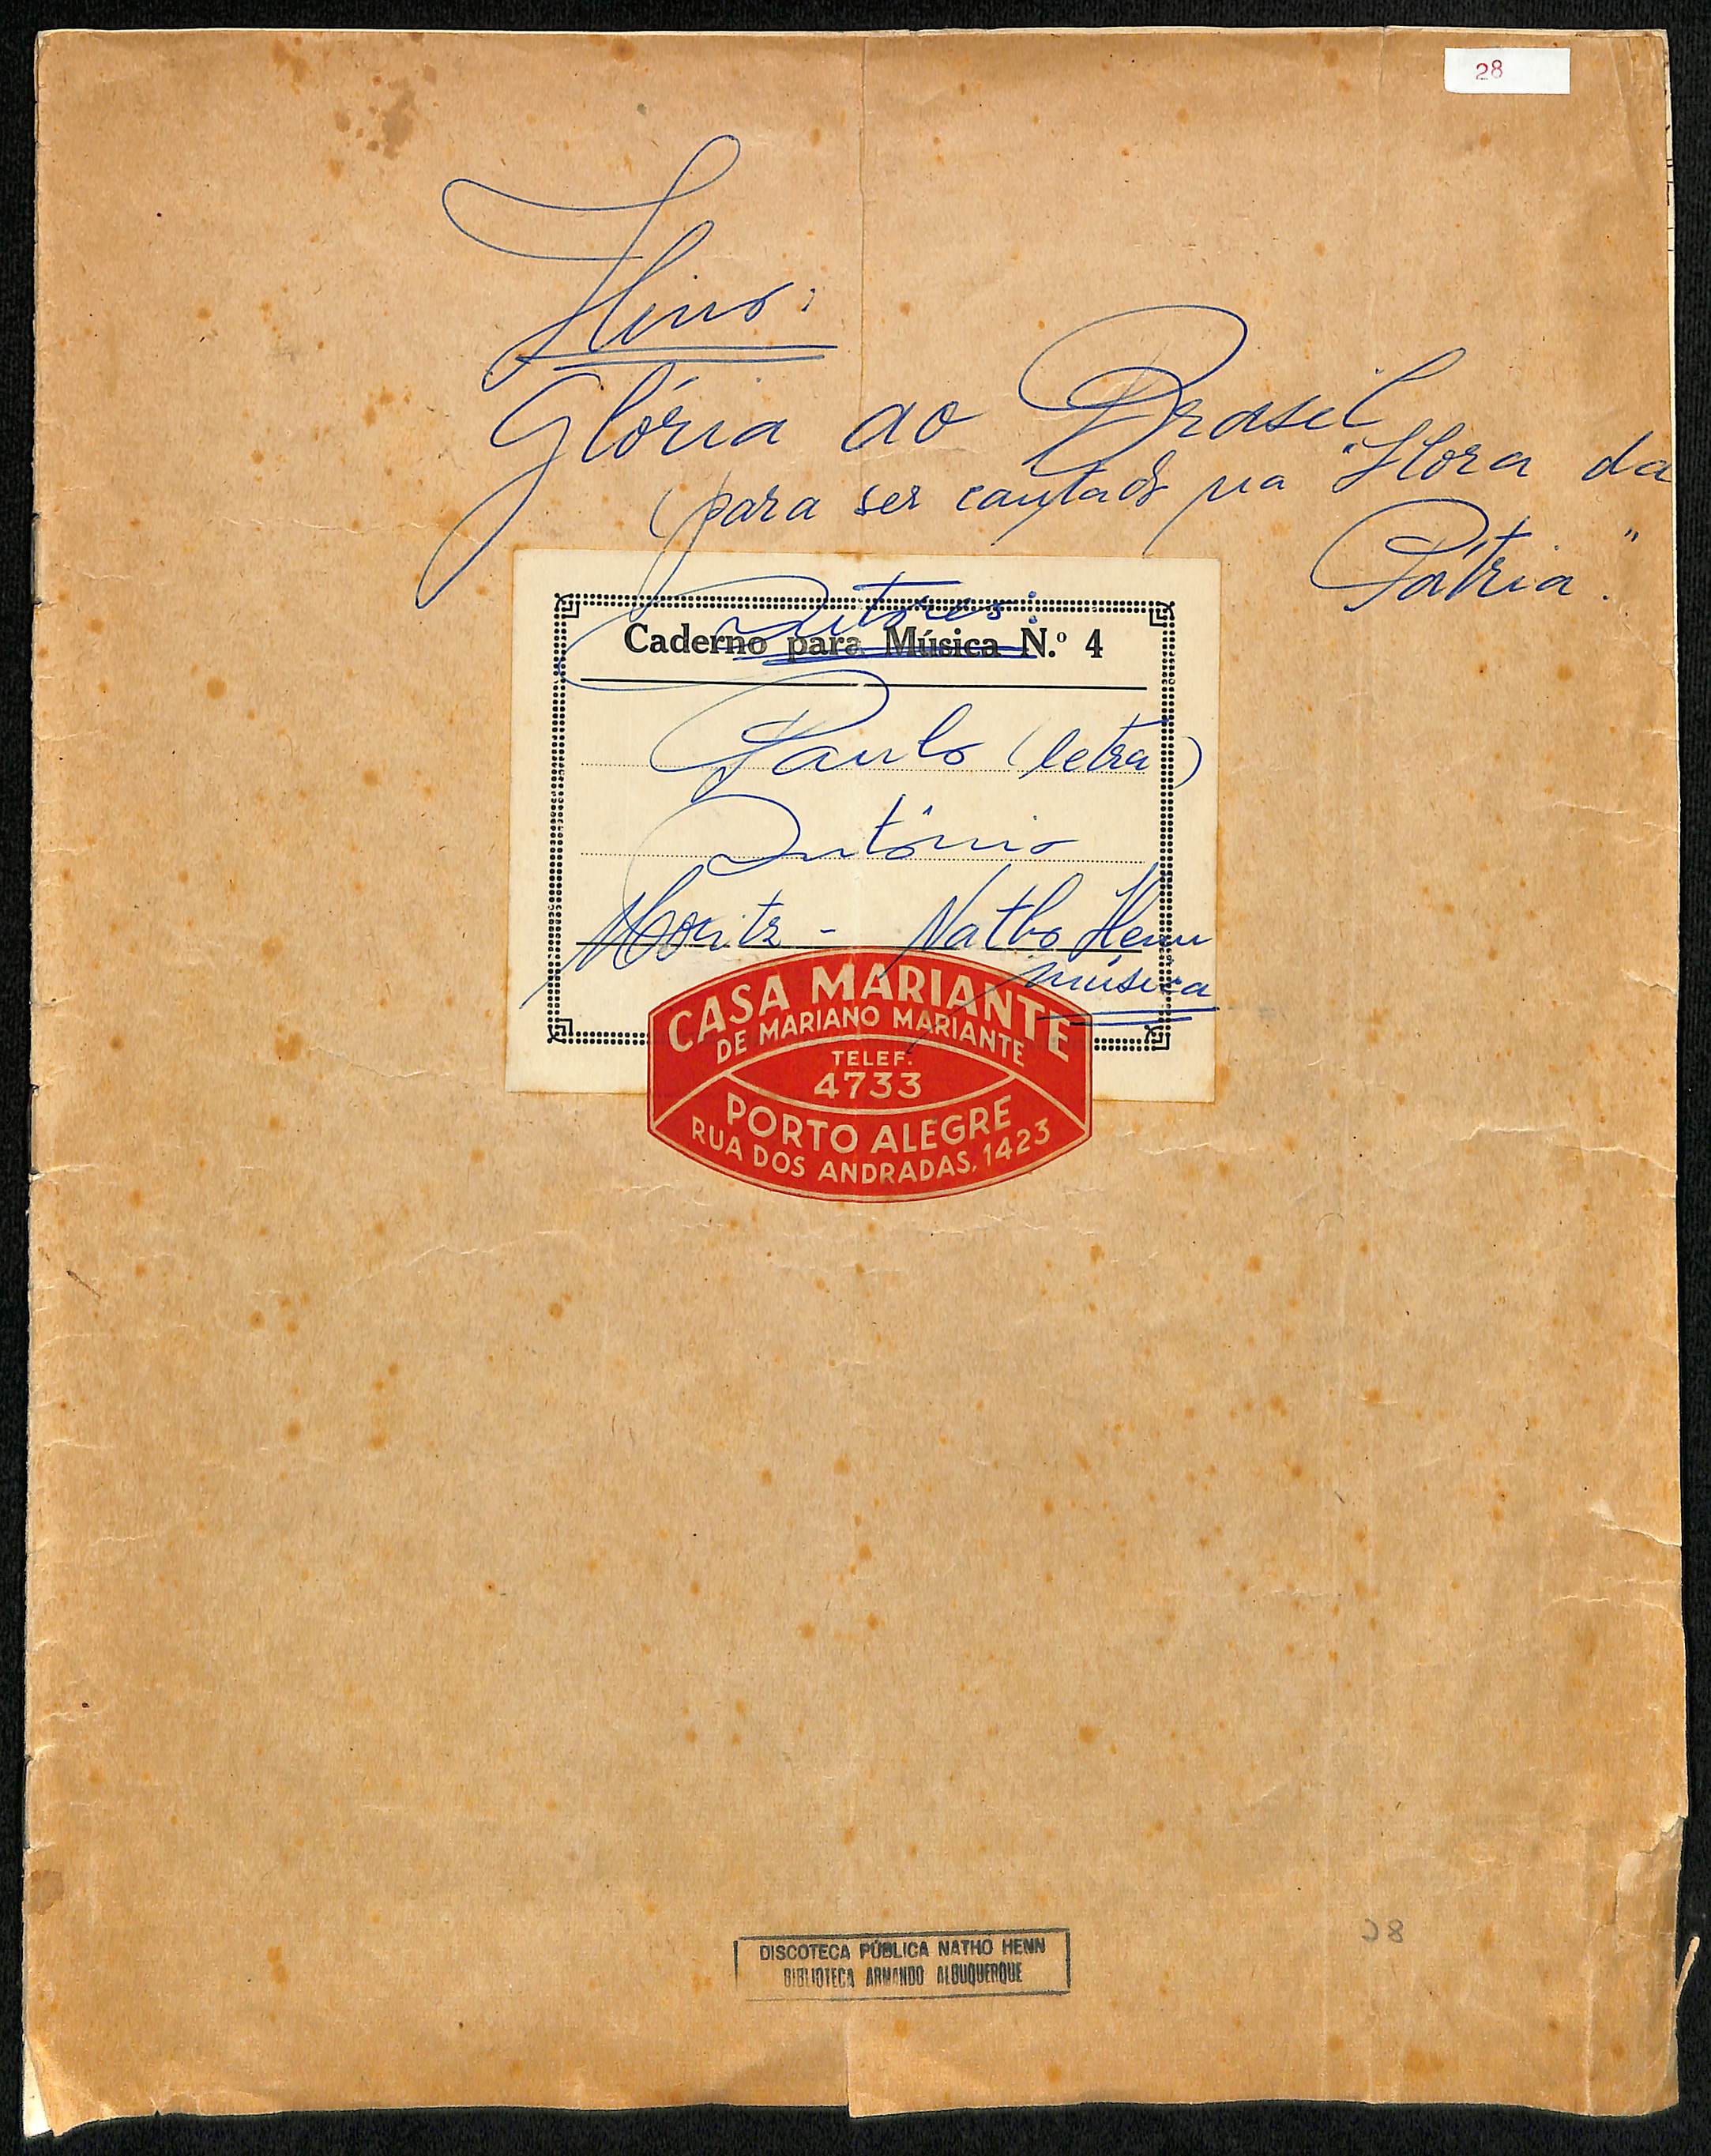 28
Hino:
Glória ao Brasil
(para ser cantado na "Hora da
Pátria"
Autores:
Caderno para Música N.º 4
Paulo (letra)
Antônio
Moritz - Natho Henn
música
CASA MARIANTE
DE MARIANO MARIANTE
TELEF.
4733
PORTO ALEGRE
RUA DOS ANDRADAS, 1423
28
DISCOTECA PÚBLICA NATHO HENN
BIBLIOTECA ARMANDO ALBUQUERQUE